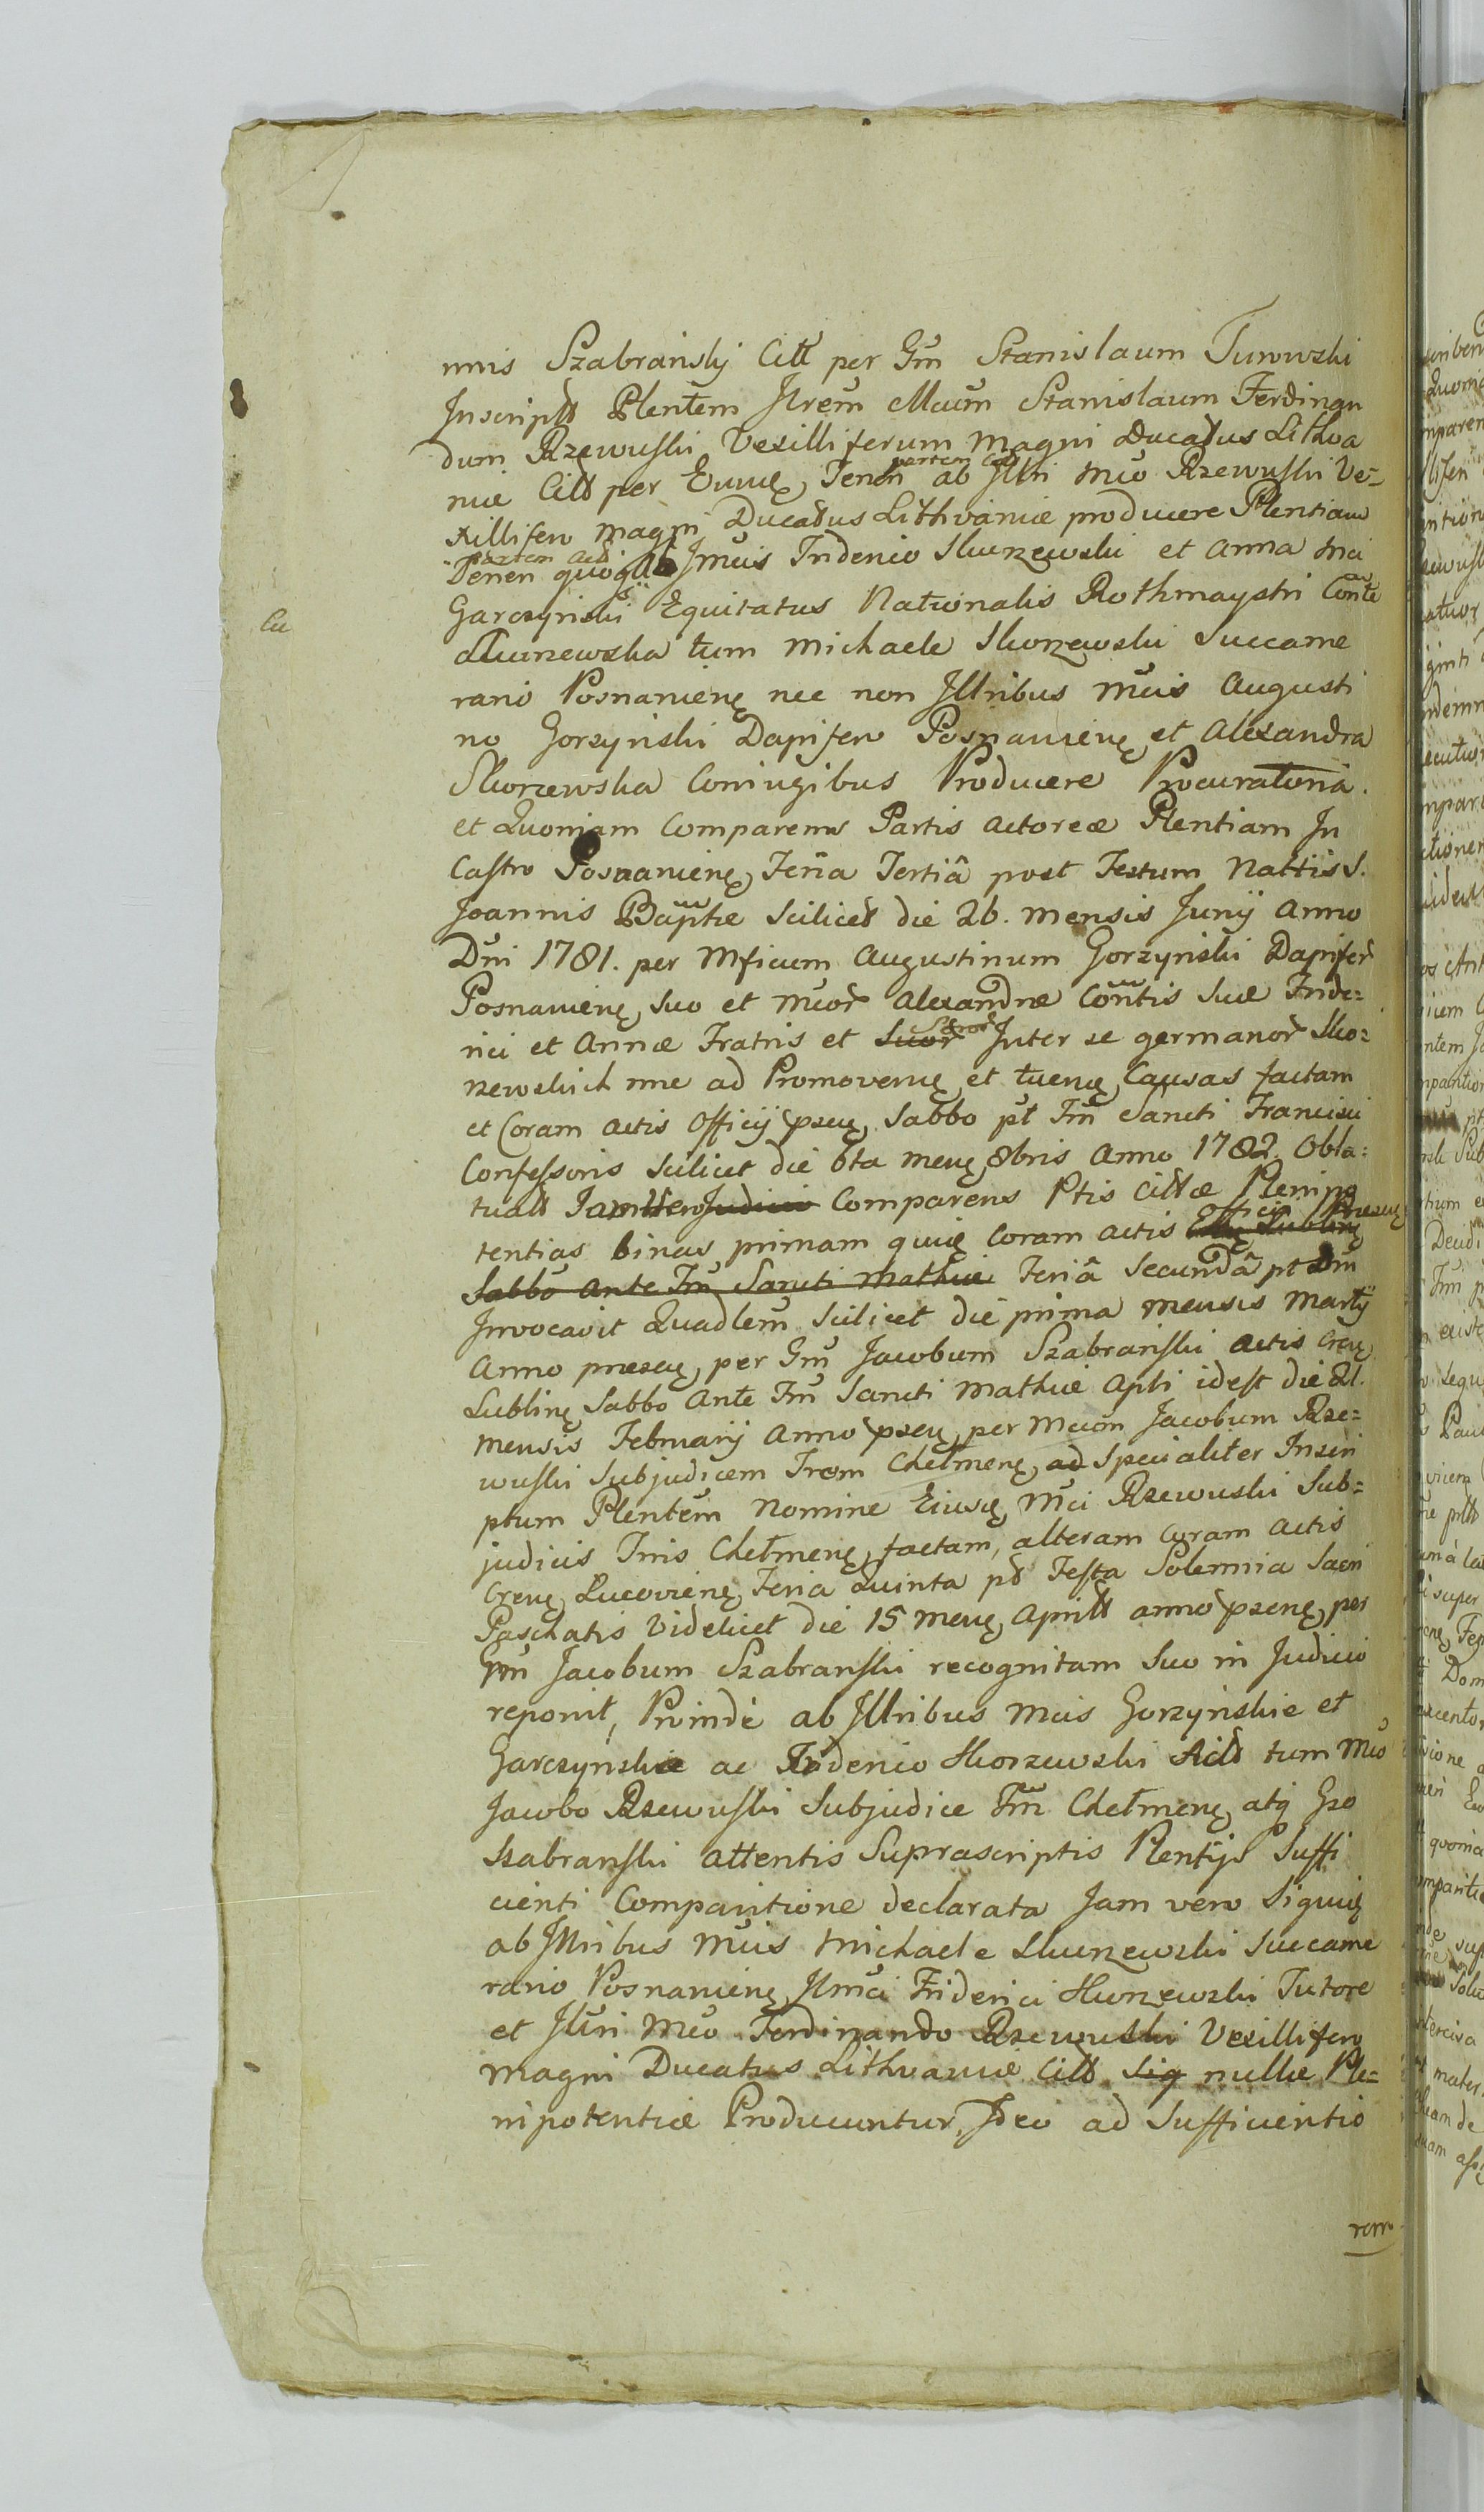 nnis Szabrański Citt per Gm̄ Stanislaum Turowski
Inscriptt Plentem Jlrem Mcum Stanislaum Ferdinan
dum Rzewuski Vexilliferum Magni Ducatus Lithva
niæ Citt per Eunę, Tenen partem Citt ab Jllri Mco Rzewuski Ve=
xillifero Magni Ducatus Lithvaniæ producere Plentiam
Tenen quoq partem Act ab Jmcis Friderico Skurzewski et Anna Mci
Garczyński Equitatus Nationalis Rothmaystri Conte
Cu
Skurzewska tum Michaele Skorzewski Succame
rario Posnanienę nec non Jllribus Mcis Augusti
no Gorzyński Dapifero Posnanienę et Alexandra
Skorzewska Coniugibus Producere Procuratoria.
et Quoniam Comparens Partis Actoreæ Plentiam In
Castro Posnanienę Feria Tertiâ post Festum Nattis S.
Joannis Baptæ Scilicet die 26. mensis Junij Anno
Dni 1781. per Mficum Augustinum Gorzyński Dapifer
Posnanienę suo et Mcor Alexandræ Contis Suæ Fride=
rici et Annæ Fratris et Suor Soror Inter se germanor Sko=
rzewskich nne ad Promovenę et tuenę Causas factam
et Coram Actis Officij psenę Sabbo pt Fm Sancti Francisci
Confessoris scilicet die 6ta menę 8bris Anno 1782. Obla=
tuatt Jam vero Judicio Comparens Ptis Cittæ Plenipo
tentias binas primam quię Coram actis Officij Præsenę
Sabbo ante Fm Sancti Mathiæ Feriâ Secundâ pt Dm
Invocavit Quadlem scilicet die prima mensis Martij
Anno præsenę per Gm Jacobum Szabrański Actis Crenę
Lublinę Sabbo Ante Fm Sancti Mathiæ Apli idest die 21.
mensis Februarij Anno psenę per Mcum Jacobum Rze=
wuski Subjudicem Trem Chełmenę ad Specialiter Inscri
ptum Plentem Nomine Eiusę Mci Rzewuski Sub=
judicis Tris Chełmenę factam, alteram Coram Actis
Crenę Lucovienę Feria Quinta pt Festa Solemnia Sacri
Paschatis Videlicet die 15 menę Aprilt anno psenę per
Gm Jacobum Szabrański recognitam suo in Judicio
reponit, Proindè ab Jllribus Mcis Gorzyńskie et
Garczyńskie ac Friderico Skorzewski Actt tum Mco
Jacobo Rzewuski Subjudice Trri Chełmenę atq Gso
Szabrański attentis Suprascriptis Plentijs Suffi
cienti Comparitione declarata Jam vero Siquię
ab Jllribus Mcis Michaele Skurzewski Succame
rario Posnanienę Jlmci Friderici Skurzewski Tutore
et Jllri Mco Ferdinando Rzewuski Vexillifero
Magni Ducatus Lithvaniæ Citt Siq nullæ Ple=
nipotentiæ Producuntur, Ideo ad Sufficientio
rem